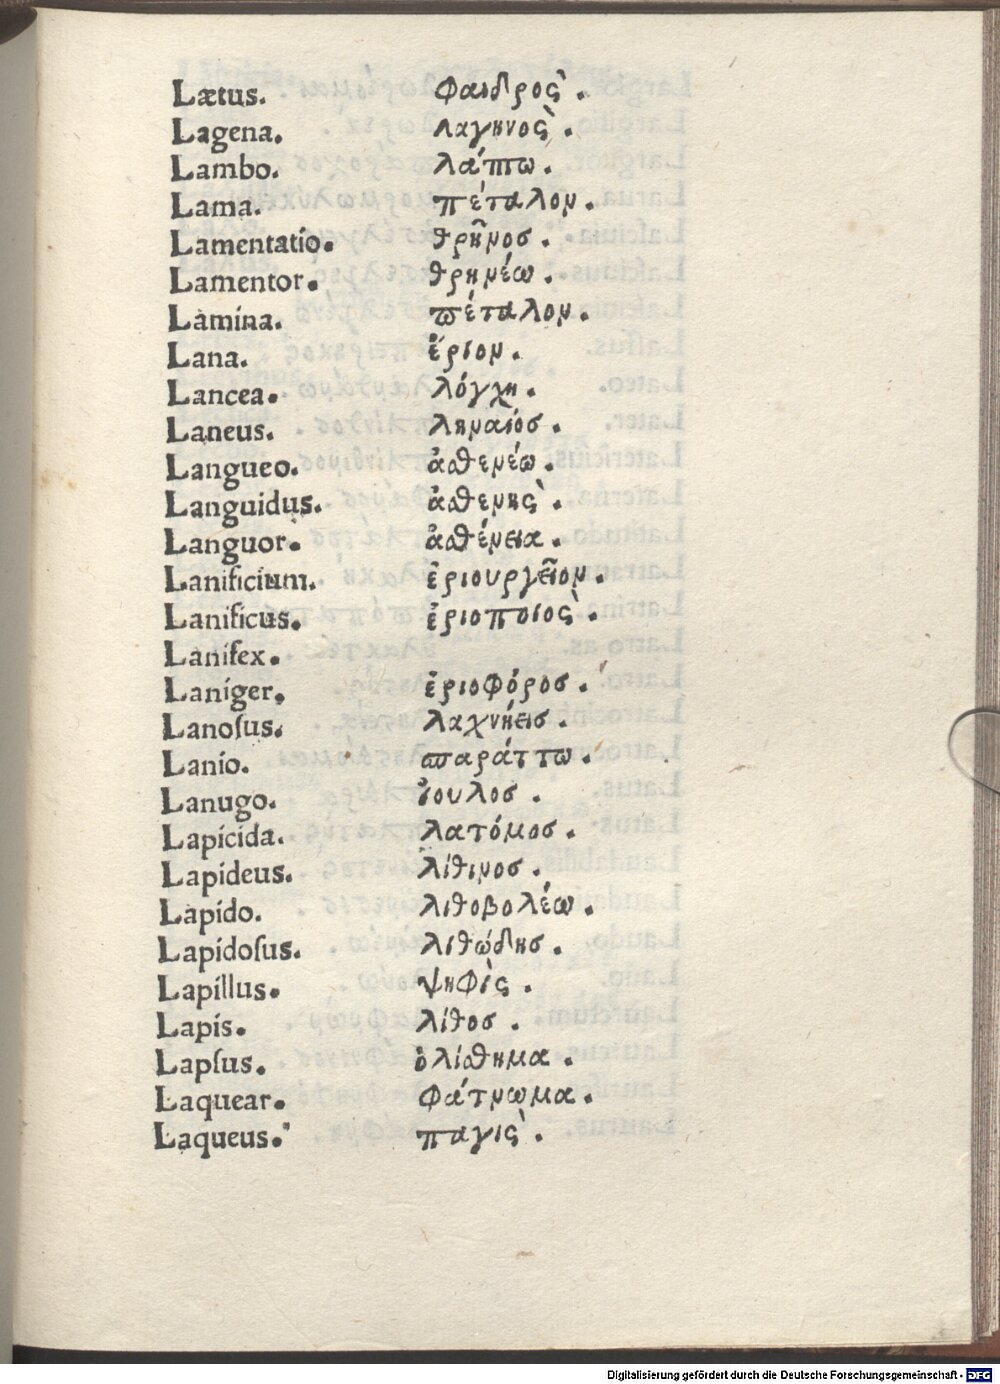 Lætus. φαιδρος̀.
Lagena. λαγηνος̀.
Lambo. λάπτω.
Lama. πέταλον.
Lamentatio. θρῆνοσ.
Lamentor. θρηνέω.
Lamina. πέταλον.
Lana. ἔριον.
Lancea. λόγχη.
Laneus. ληναιόσ.
Langueo. ἀσθενέω.
Languidus. ἀσθενης̀.
Languor. ἀσθένεια.
Lanificium. ἐριουργεῖον.
Lanificus. ἐριοποιος̀.
Lanifex.
Laniger. ἐριοφόροσ.
Lanoſus. λαχνήεισ.
Lanio. σπαράττω.
Lanugo. ἴουλοσ.
Lapicida. λατόμοσ.
Lapideus. λίθινοσ.
Lapido. λιθοβολέω.
Lapidoſus. λιθώδησ.
Lapillus. ψηφὶς.
Lapis. λίθοσ.
Lapſus. ὀλίσθημα.
Laquear. φάτνωμα.
Laqueus. παγις̀.
Digitalisierung gefördert durch die Deutsche Forschungsgemeinschaft - DFG